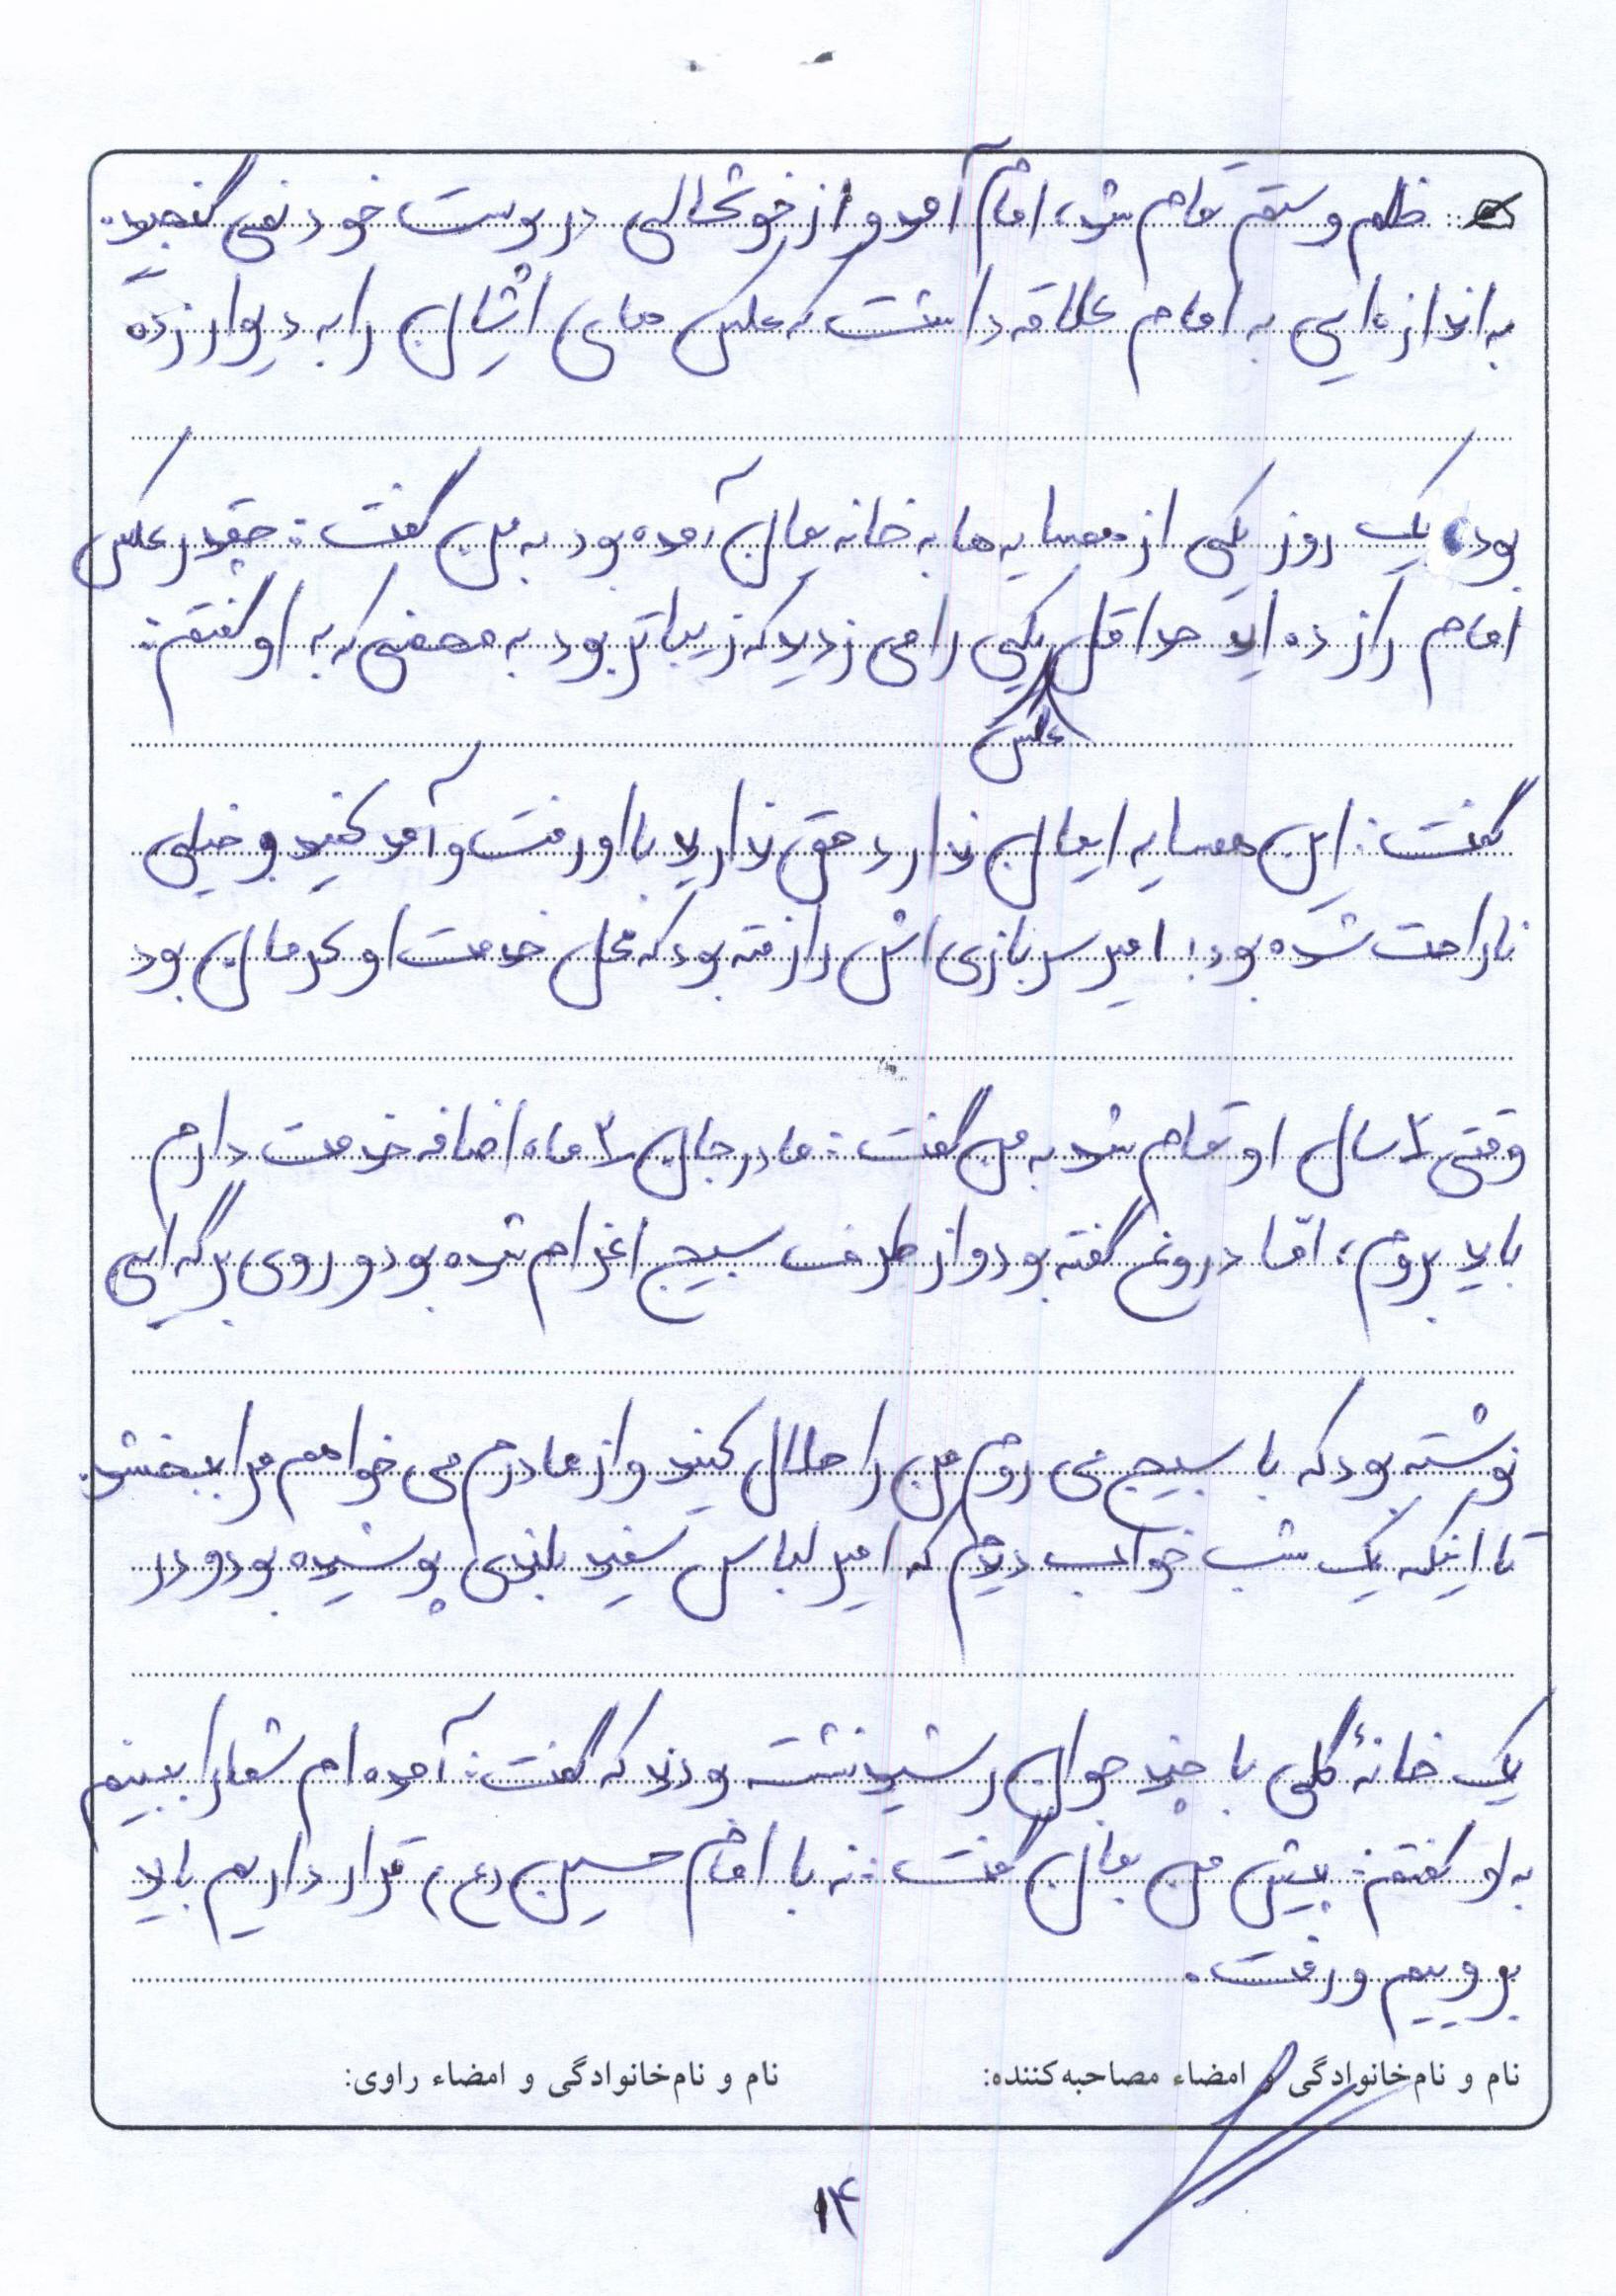 ظلم و ستم تمام شد، امام آمد و از خوشحالی در پوست خود نمی گنجید.
به اندازه ایی به امام علاقه داشت که عکس های ایشان را به دیوار زده
بود، یک روز یکی از همسایه ها به خانه یمان آمده بود به من گفت: چقدر عکس
امام را زده اید حداقل یکی را می زدید که زیباتر بود به محضی که به او گفتم:
عکس
گفت: این همسایه ایمان ندارد حق ندارید با او رفت و آمد کنید و خیلی
ناراحت شده بود! امیر سربازی اش را رفته بود که محل خدمت او کرمان بود
وقتی ۲ سال او تمام شد به من گفت: مادر جان ۳ ماه اضافه خدمت دارم
باید بروم، امّا دروغ گفته بود و از طرف بسیج اعزام شده بود و روی برگه ایی
نوشته بود که با بسیج می روم من را حلال کنید و از مادرم می خواهم مرا ببخشد.
تا اینکه یک شب خواب دیدم که امیر لباس سفید بلندی پوشیده بود و در
یک خانهٔ گلی با چند جوان رشید نشته بودند که گفت: آمده ام شما را ببینم
به او گفتم: پیش من بمان گفت: نه با امام حسین (ع) قرار داریم باید
برویم و رفت.
نام و نام‌خانوادگی و امضاء مصاحبه‌کننده: نام و نام‌خانوادگی و امضاء راوی:
۱۴